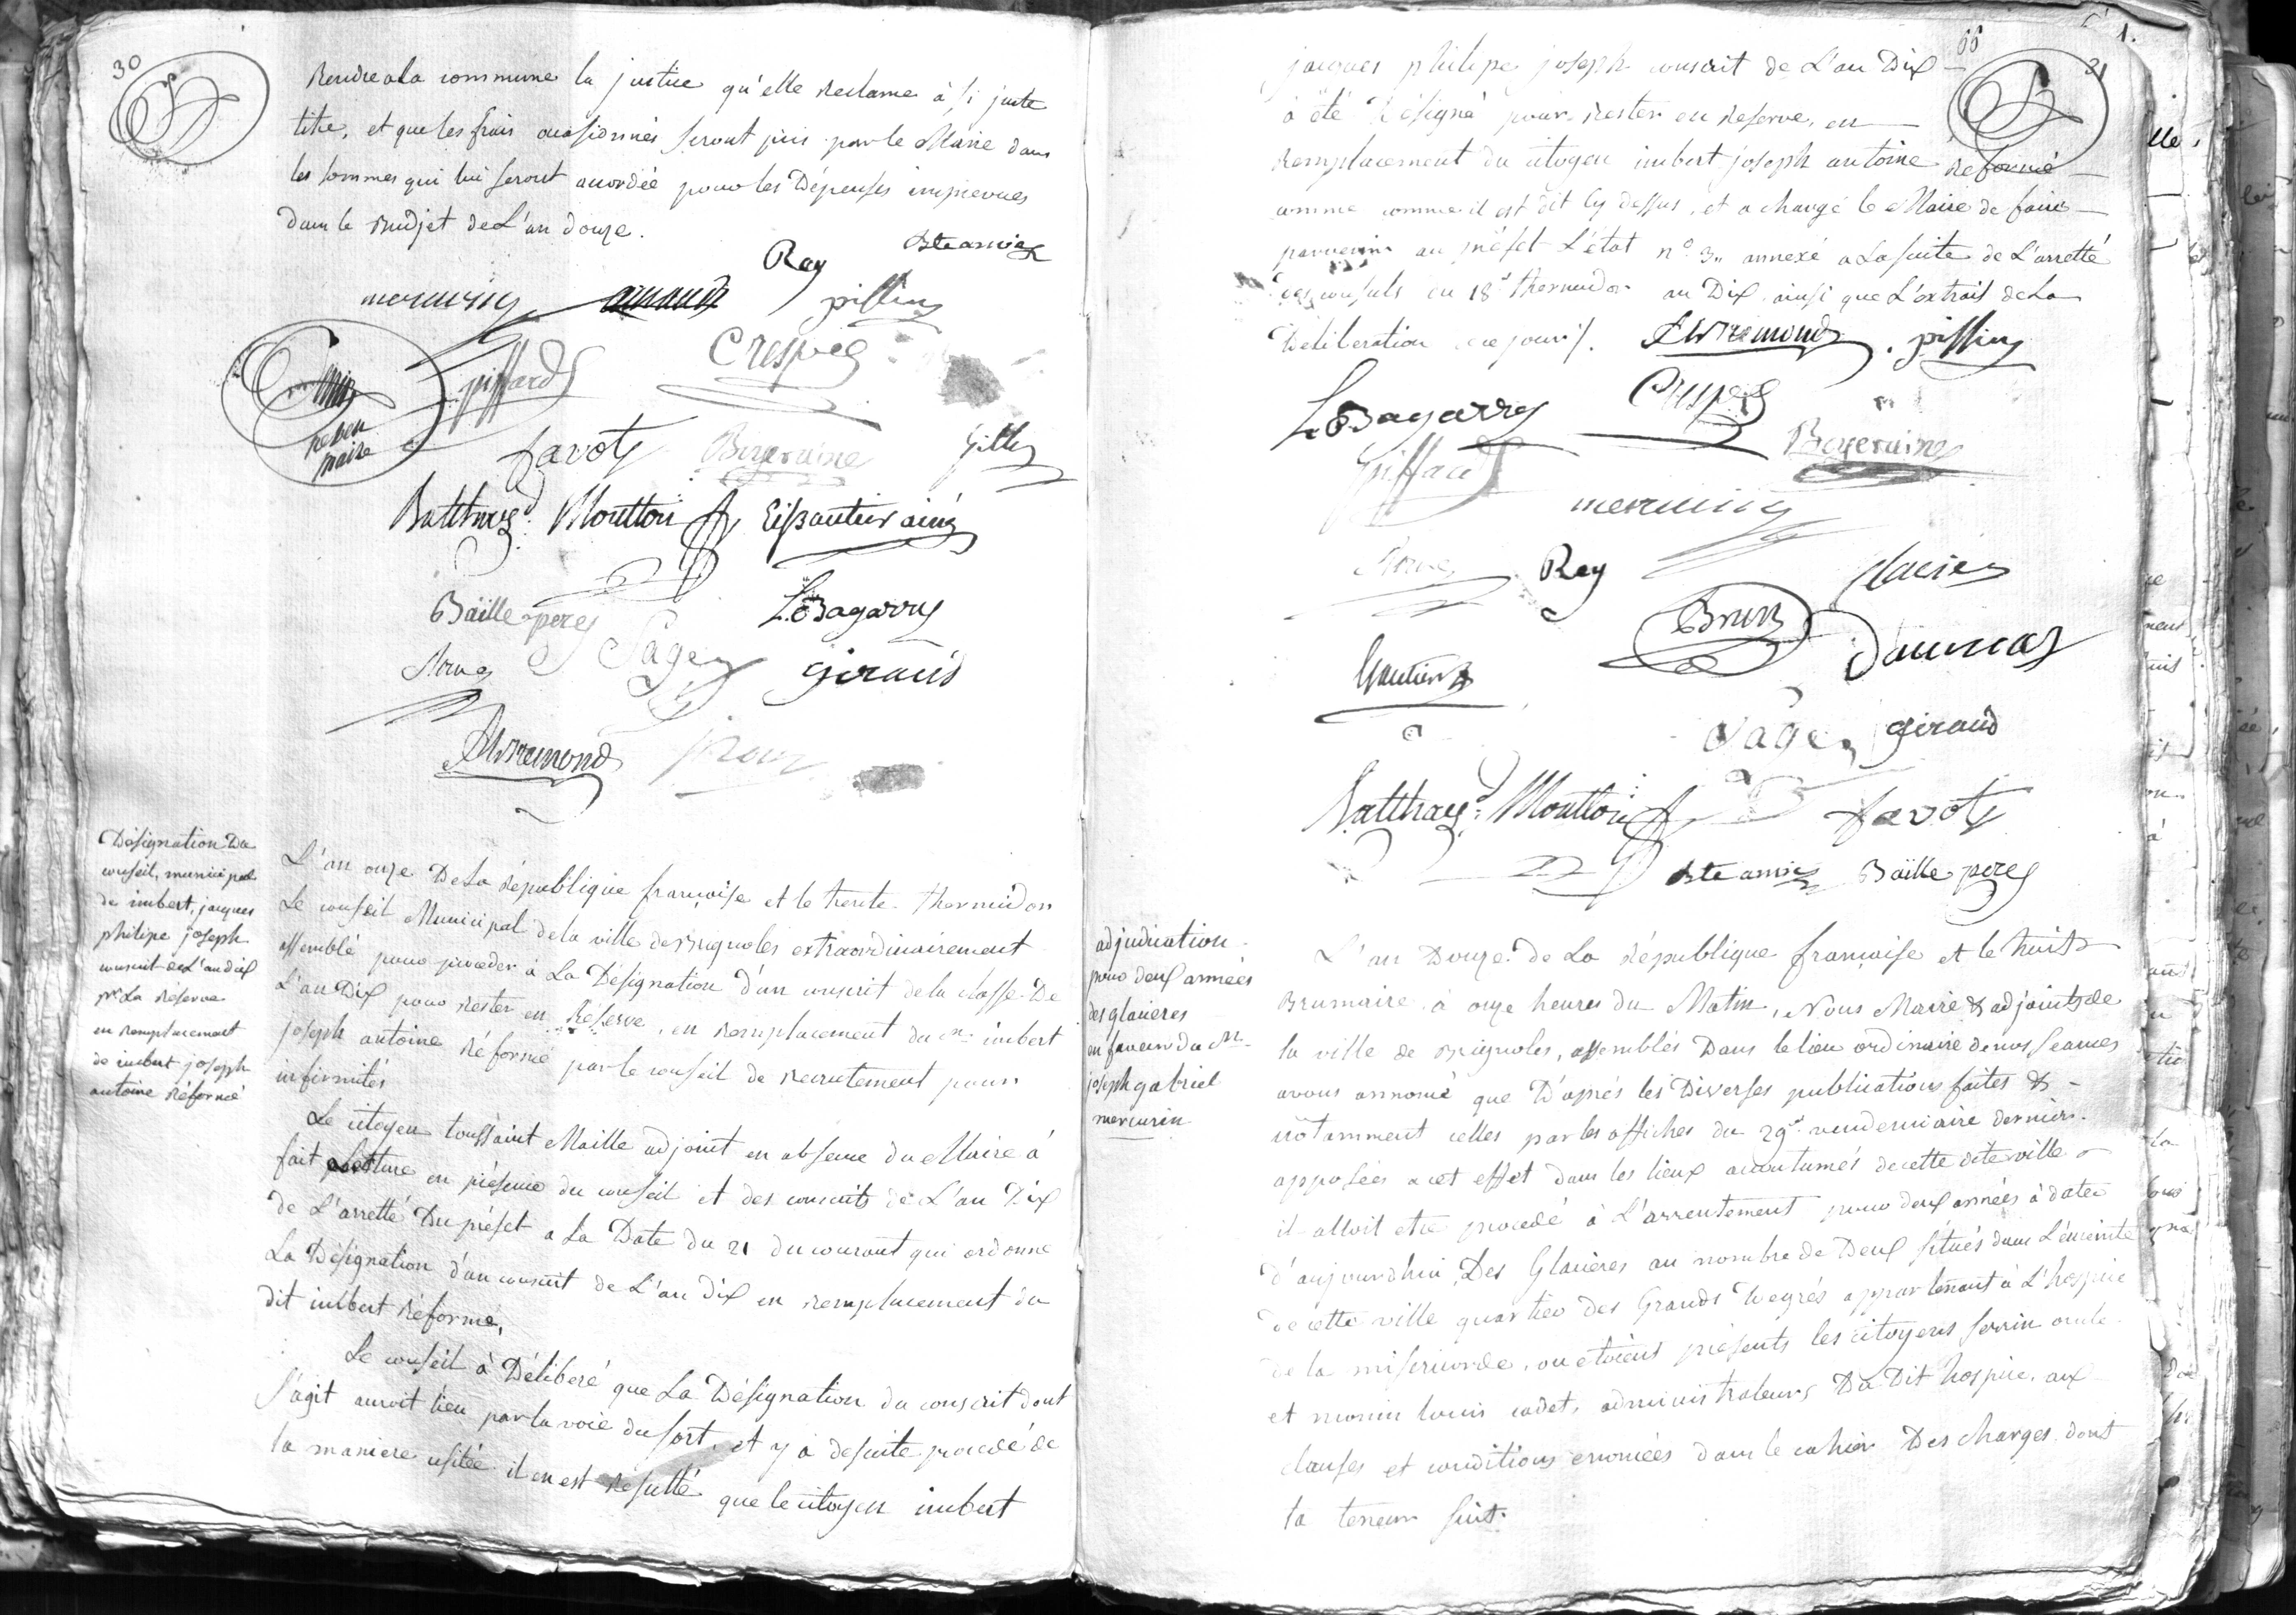 30
Rendre ala commune la justice qu'elle reclame à si juste
titre, et que les frais occasionnés seront pris par le Maire dans
les sommes qui lui seront accordée pour les Dépenses imprevues
dans le Budjet de L'an douze.
Rey
mercurin arnaud pissin
giffard Crespeg
maire
favoty Gilly
Moutton Gautier ainé
Baille pere LBagarry
Sagey giraud
Désignation Du
conseil, municipal
de imbert, jacques
philipe joseph
conscrit de L'an dix
pr La Réserve
en remplacement
de imbert joseph
antoine Réformé
L'an onze De La république française et le trente thermidor
Le conseil Municipal de la ville de Brignoles extraordinairement
assemblé pour proceder à La Désignation d'un conscrit de la classe De
L'an Dix pour rester en Réserve, en remplacement du cn. imbert
joseph antoine Réformé par le conseil de recrutement pour
infirmités
Le citoyen toussaint Maille adjoint en absence du Maire à
fait Lecture en présence du conseil et des conscrits de L'an Dix
de L'arretté Du préfet a La Date du 21 du courant qui ordonne
La Désignation d'un conscrit de L'an Dix en remplacement du
dit imbert Réformé,
Le conseil à Délibéré que La Désignation du conscrit dont
s'agit auroit lieu par la voie du sort, et y à desuite procedé de
la maniere usitée il en est résulté que le citoyen imbert
66
31
1.
jacques philipe joseph conscrit de L'an Dix
à été Désigné pour rester en reserve, en
remplacement du citoyen imbert joseph antoine Reformé
comme il est dit cy dessus, et a chargé le Maire de faire
parvenir au préfet L'état n° 3 annexé a La suite de L'arretté
des consuls du 18 thermidor an Dix ainsi que L'extrait de La
Deliberation de ce jour/.
pissin
LBagarry Crespeg
giffard
mercurin
Rey
Brun
Gautier Daumas
Sagey giraud
Moutton favoty
Baille pere
adjudication
pour deux années
des glacieres
en faveur du cn.
joseph gabriel
mercurin
L'an Douze De La république française et le huit
Brumaire à onze heures du Matin, Nous Maire & adjoints de
la ville de Brignoles, assemblés Dans le lieu ordinaire de nos seances
avons annoncé que D'après les Diverses publications faites &
nôtamment celles par les affiches du 29 vendemiaire dernier
apposées a cet effet dans les lieux accoutumés de cette dite ville
il alloit etre procedé à L'arrentement pour deux années à dater
d'aujourdhui, Des Glacières au nombre de Deux situés dans L'enceinte
de cette ville quartier des Grands appartenant à L'hospice
de la misericorde, ou etoient présents les citoyens
et monin louis cadet, administrateurs Du Dit hospice, aux
clauses et conditions enoncées dans le cahier Des charges dont
la teneur suit.